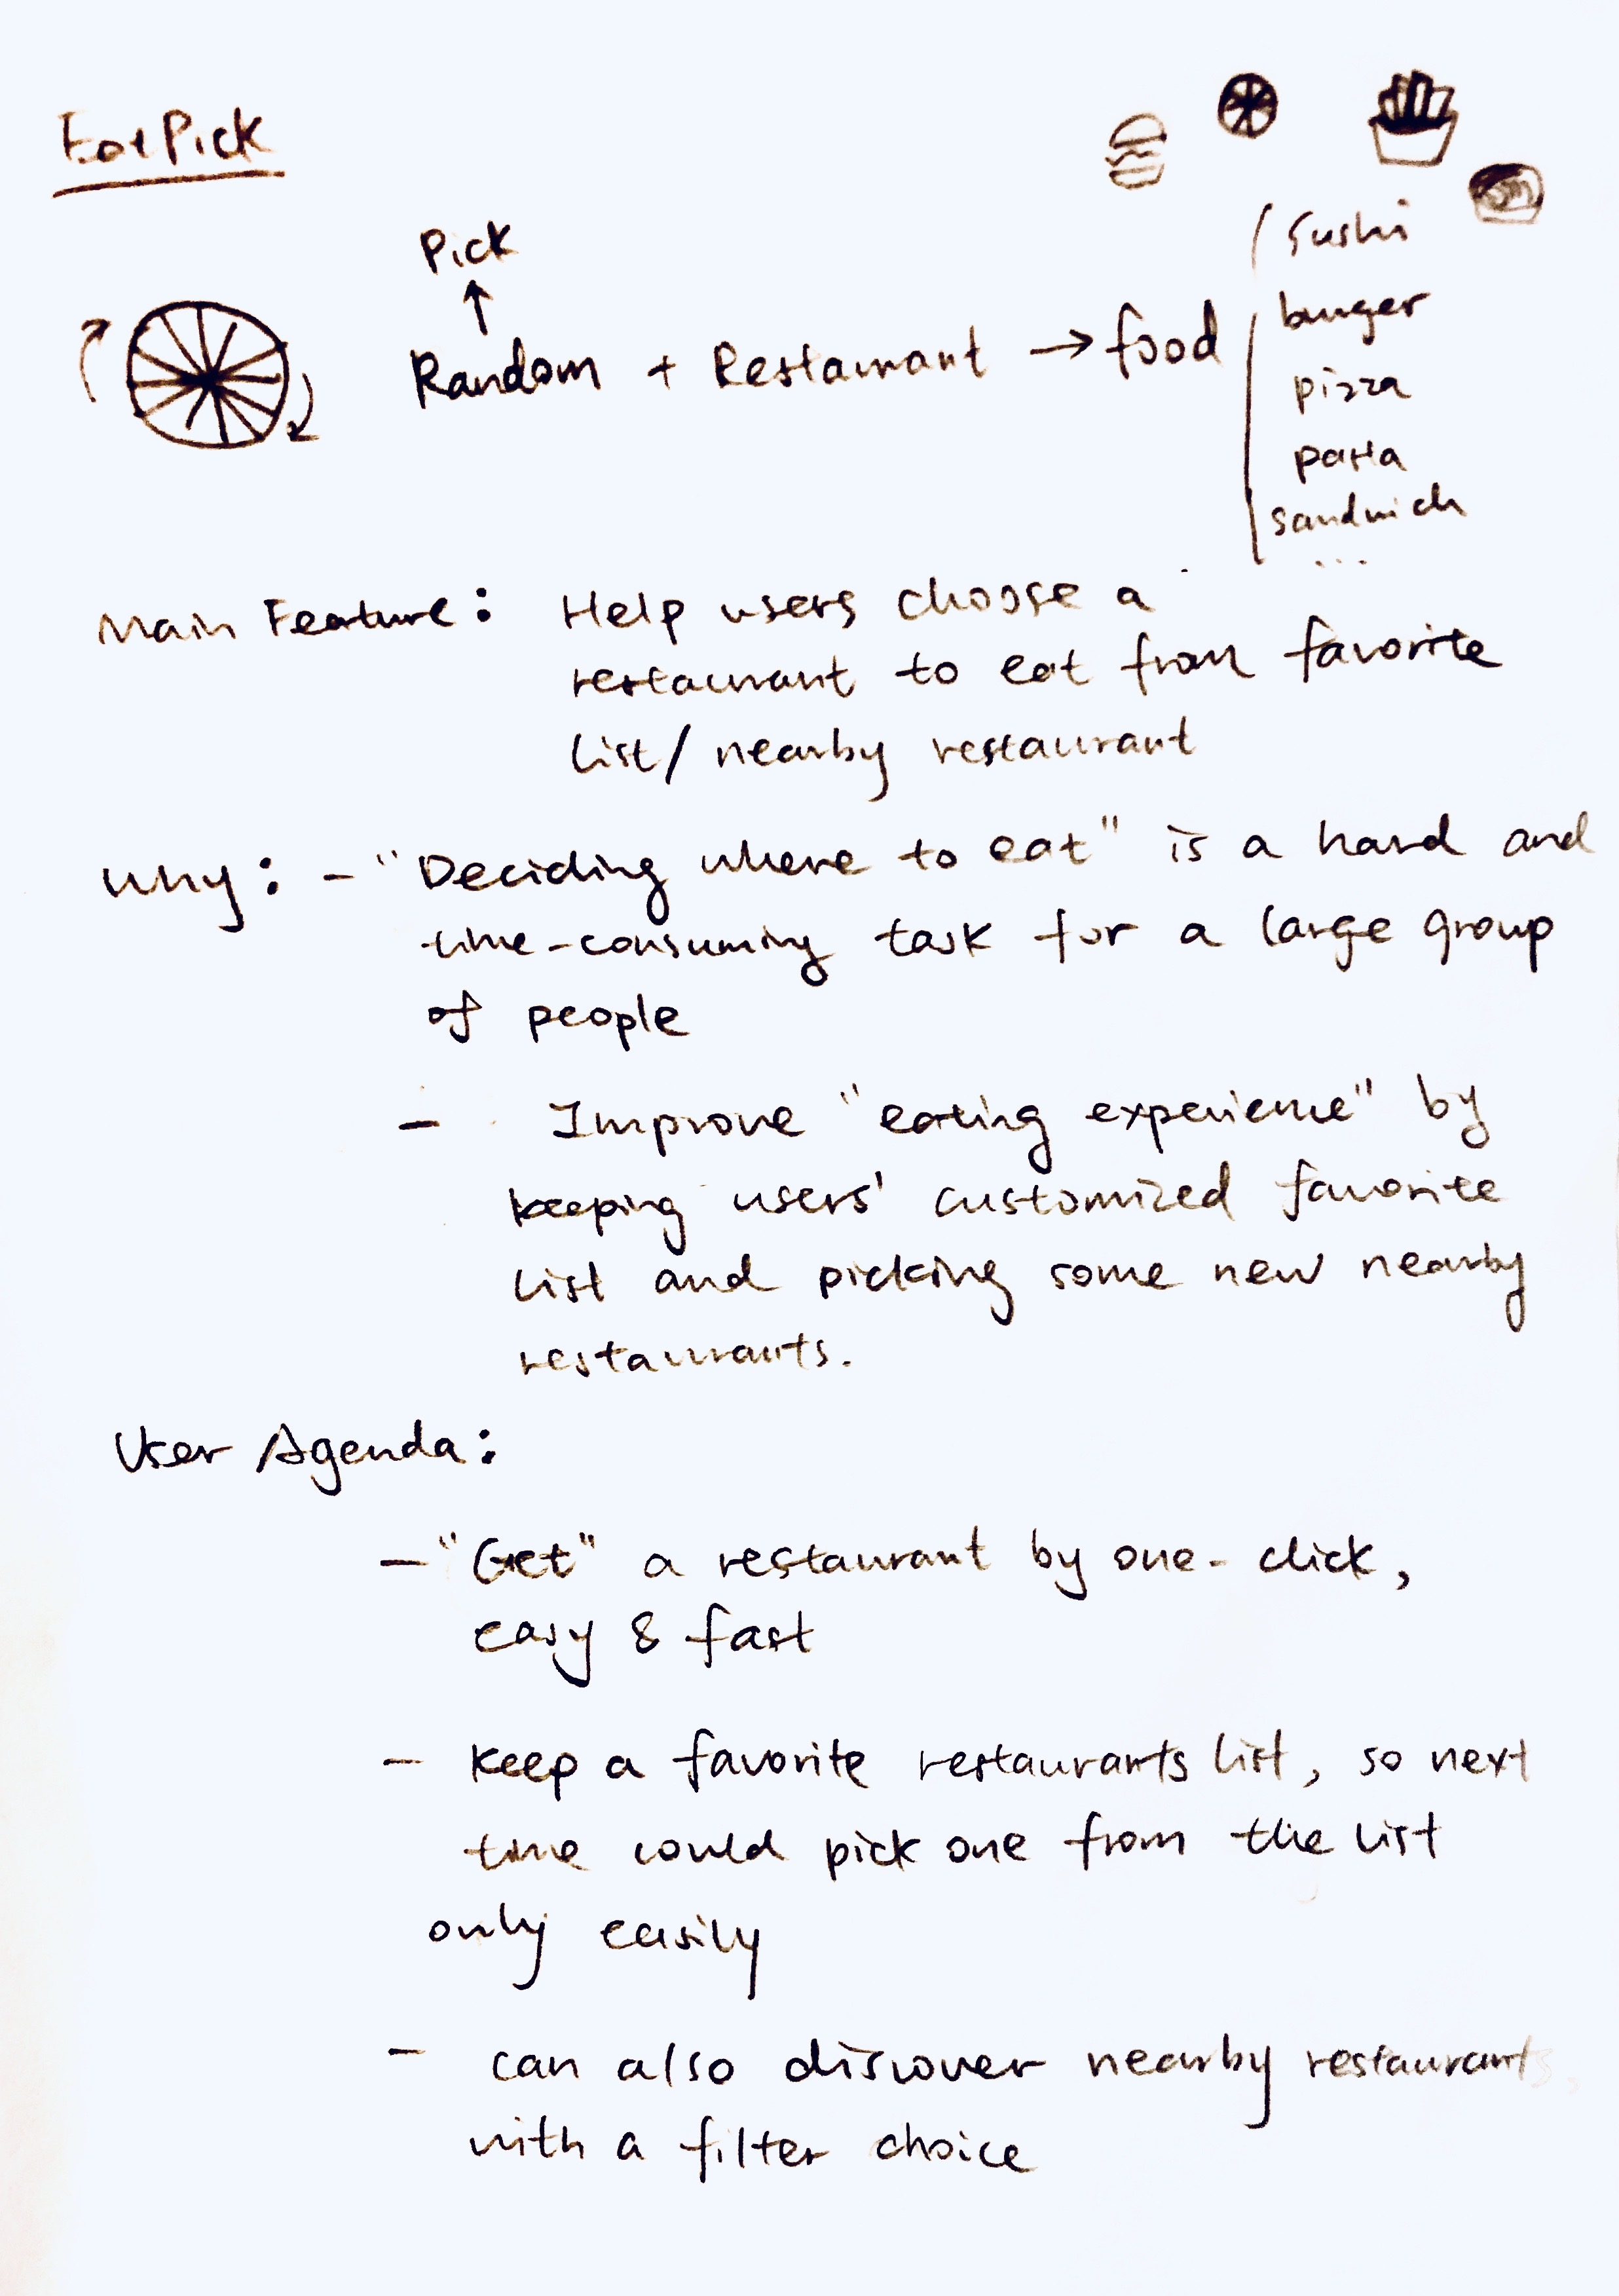 EatPick
Pick
↑
Random + Restaurant → food
Sushi
burger
pizza
pasta
sandwich
...
Main Feature: Help users choose a
restaurant to eat from favorite
list/ nearby restaurant
Why: - "Deciding where to eat" is a hard and
time-consuming task for a large group
of people
- Improve "eating experience" by
keeping users' customized favorite
list and picking some new nearby
restaurants.
User Agenda:
- "Get" a restaurant by one-click,
easy & fast
- keep a favorite restaurants list, so next
time could pick one from the list
only easily
- can also discover nearby restaurants
with a filter choice